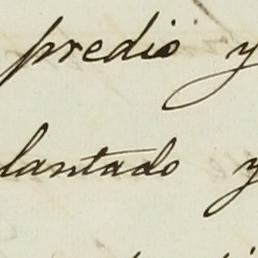 predio y
lantado y